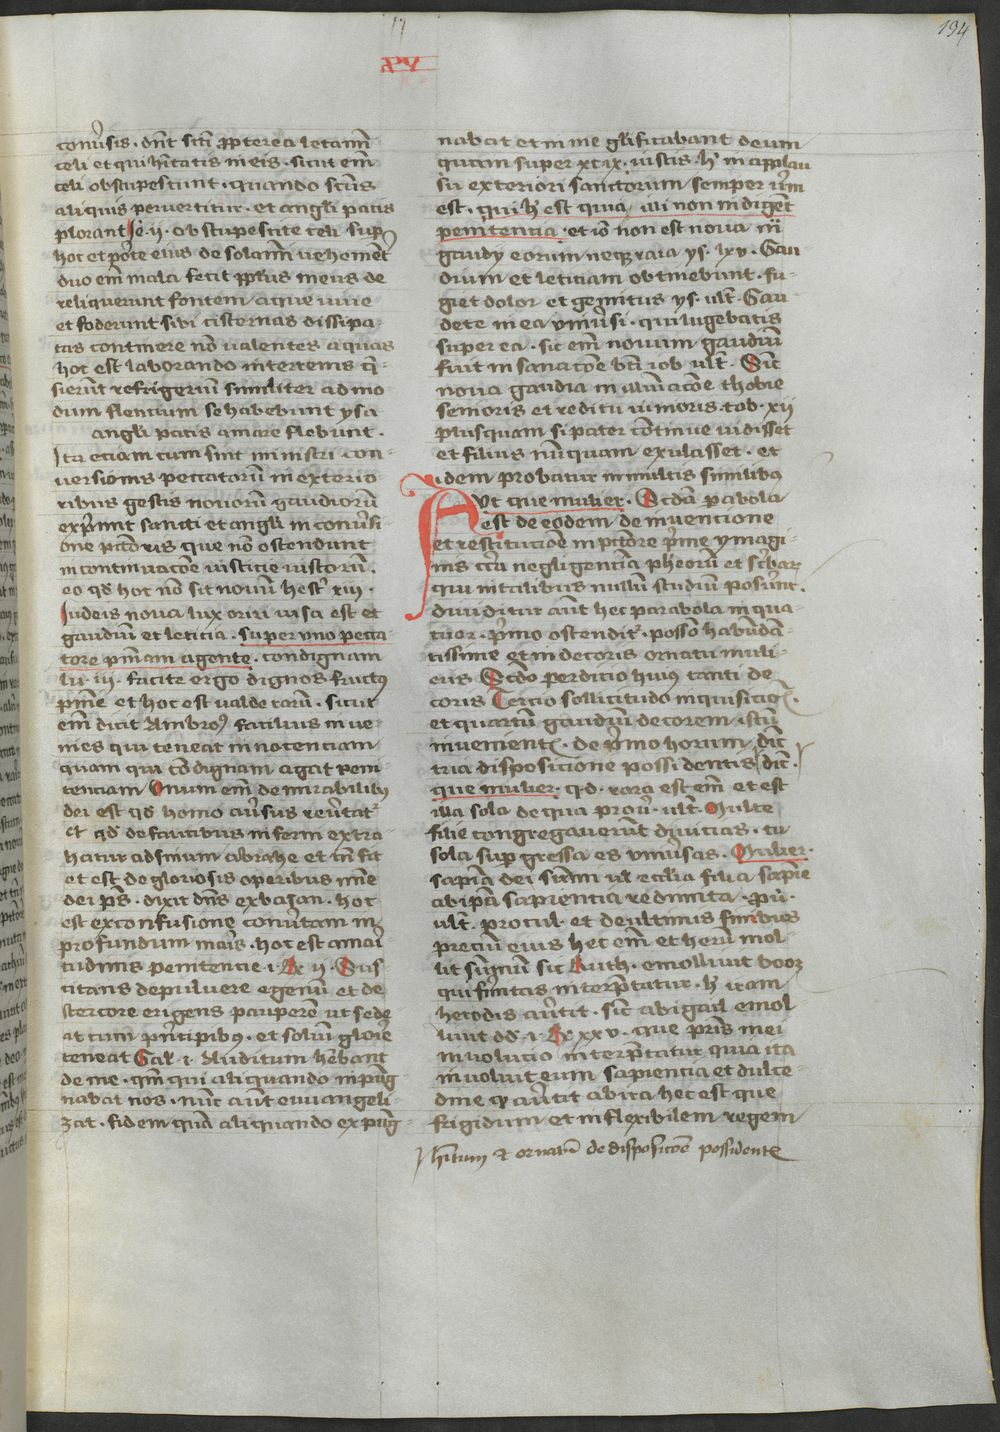 17
194
XV
conv̄sis · dn̄t sc̄i ꝓpterea letam̄
celi et qui hītatis in eis · sicut em̄
celi obstupescunt · quando scūs
aliquis pervertitur · et angli pacis
plorant Je · ii · obstupescite celi sup
hoc et porte eius desolam̄ vehement̄
duo em̄ mala fecit ppl̄us meus de
reliquerunt fontem aque vive
et foderunt sibi cisternas dissipa-
tas continere nō valentes aquas
hoc est laborando in terrenis q̄-
sierūt refrigeriū similiter ad mo
dum flentium se habebunt ysa
angli pacis amare flebunt ·
Ita etiam cum sint ministri con-
versionis peccatorū in exterio-
ribus gestis novorū gaudiorū
exp̄mit sancti et angli in conv̄si-
one pctōris que nō ostendunt
in continuacōne iusticie iustorū ·
eo qd̄ hoc nō sit novū hest̄ viii ·
Judeis nova lux oriri visa est et
gaudiū et leticia · super uno pecca-
tore pn̄iam agente · condignam
lu · iii · facite ergo dignos fructꝰ
pn̄ie et hoc est valde rarū · sicut
em̄ dicit Ambroꝰ facilius inve-
nies qui teneat innocenciam
quam qui cō dignam agat peni-
tenciam Unum em̄ de mirabilibꝰ
dei est qd̄ homo av̄sus rev̄tat᷑
et qd̄ de faucibus inferni extra
hatur ad sinum abrahe et in̄ sic
et est de gloriosis operibus mīe
dei ps̄ · dixit dn̄s ex basan · hoc
est ex confusione conv̄tam in
profundum mar̄is · hoc est amari
tudinis penitencie · i · R ii · Sus-
citans de pulvere egenū et de
stercore erigens pauperē ut sede
at cum pn̄cipibꝰ · et soliū glorie
teneat Gal · i · Auditum hēbant
de me · qm̄ qui aliquando inpug
nabat nos · nūc aūt euuangeli-
zat · fidem quā aliquando expug-
nabat et in me gl̄ificabant deum
quam super xcix · iustis · hͥ in applau
su exteriori sanctorum semper v̄m
est · qui hͥ est quia illi non indiget
penitencia · et iō non est nova in̄
gaudy eorum neqꝫ rara ys · lxv · Gau-
dium et leticiam obtinebunt · fu-
giet dolor et gemitus ys · ult̄ · Gau-
dete in ea vniv̄si · qui lugebatis
super ea · sic em̄ novum gaudiū
fuit in sanacōe bt̄i iob ult̄ · Sic̄
nova gaudia in illuminacōe thobie
senioris et reditu iunioris · tob · xii
plusquam si pater cōtinue vidisset
et filius nūquam exulasset · et
idem probatur in multis similibꝰ
Aut que mulier · Scdā parabola
est de eodem de invencione
et restitucioē in pctōre pr̄me ymagi-
nis cir̄a negligenciā pheorū et scbaꝝ
qui in talibus nullū studiū posūint ·
dividitur aūt hec parabola in qua-
tuor · pr̄imo ostendit᷑ · possō habūdā-
tissime et in decoris ornatu muli-
eris Scdo perdicio huiꝰ tanti de
coris Tercio sollicitudo inquisicīo ·
et quartū gaudiū decorem istū
invenient̄ · de pr̄imo horum dic̄
tria disposicione possidentis dic̄ ·
que mulier · qd · rara est em̄ et est
illa sola de qua prov̄ · ult̄ · Multe
filie congregaverūt divicias · tu
sola supgressa es vniv̄sas · Mulier ·
sapiā dei
ab ipsa sapiencia redimita · pv̄ ·
ult̄ · procul et de ultimis finibus
preciū eius hec em̄ et herū mol-
lit sic Ruth · emollivit booz
qui interp̄tatur · hͥ iram
herodis av̄tit · sic̄ abigail emol
livit dd̄ · i · R xxv · que pr̄is mei
involucio interp̄tatur quia ita
involvit eum sapiencia et dulce-
dine ꝙ av̄tit ab ira hec est que
frigidum et inflexibilem regem
hītum et ornatū de disposicōe possident̄